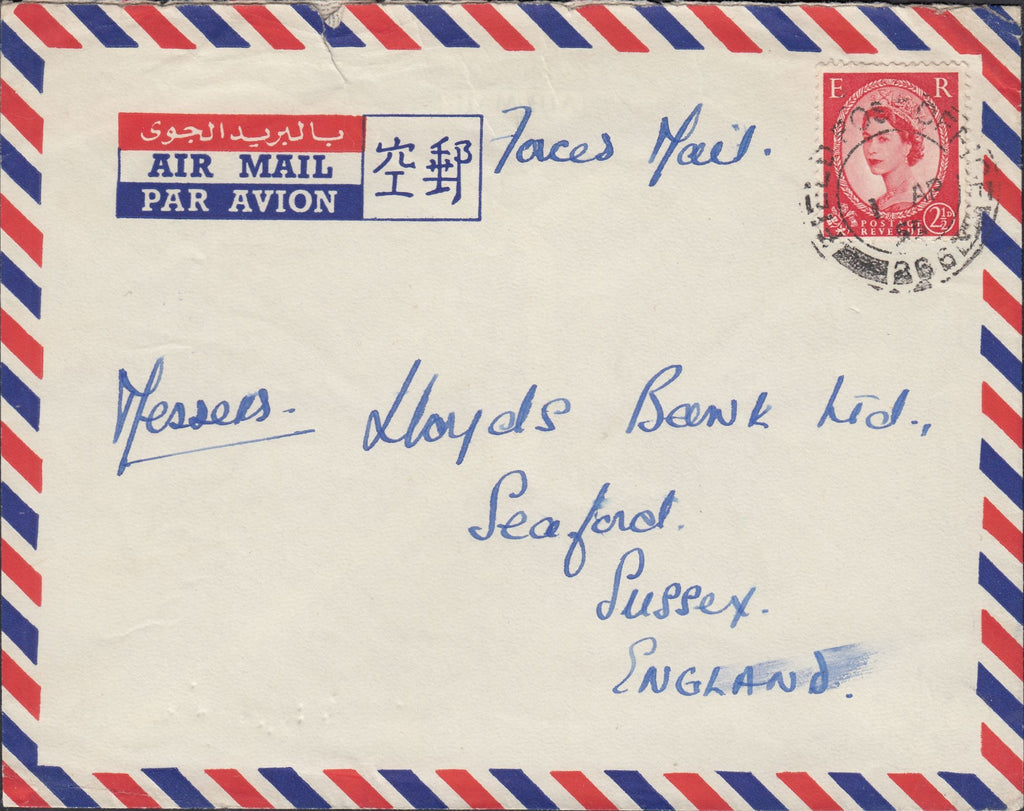 بالبريد الجوى
AIR MAIL
PAR AVION
空郵
Forces Mail.
E R
POSTAGE
REVENUE
2½D
FIELD POST OFFICE
1 AP
Messers.
Lloyds Bank Ltd.,
Seaford.
Sussex.
ENGLAND.